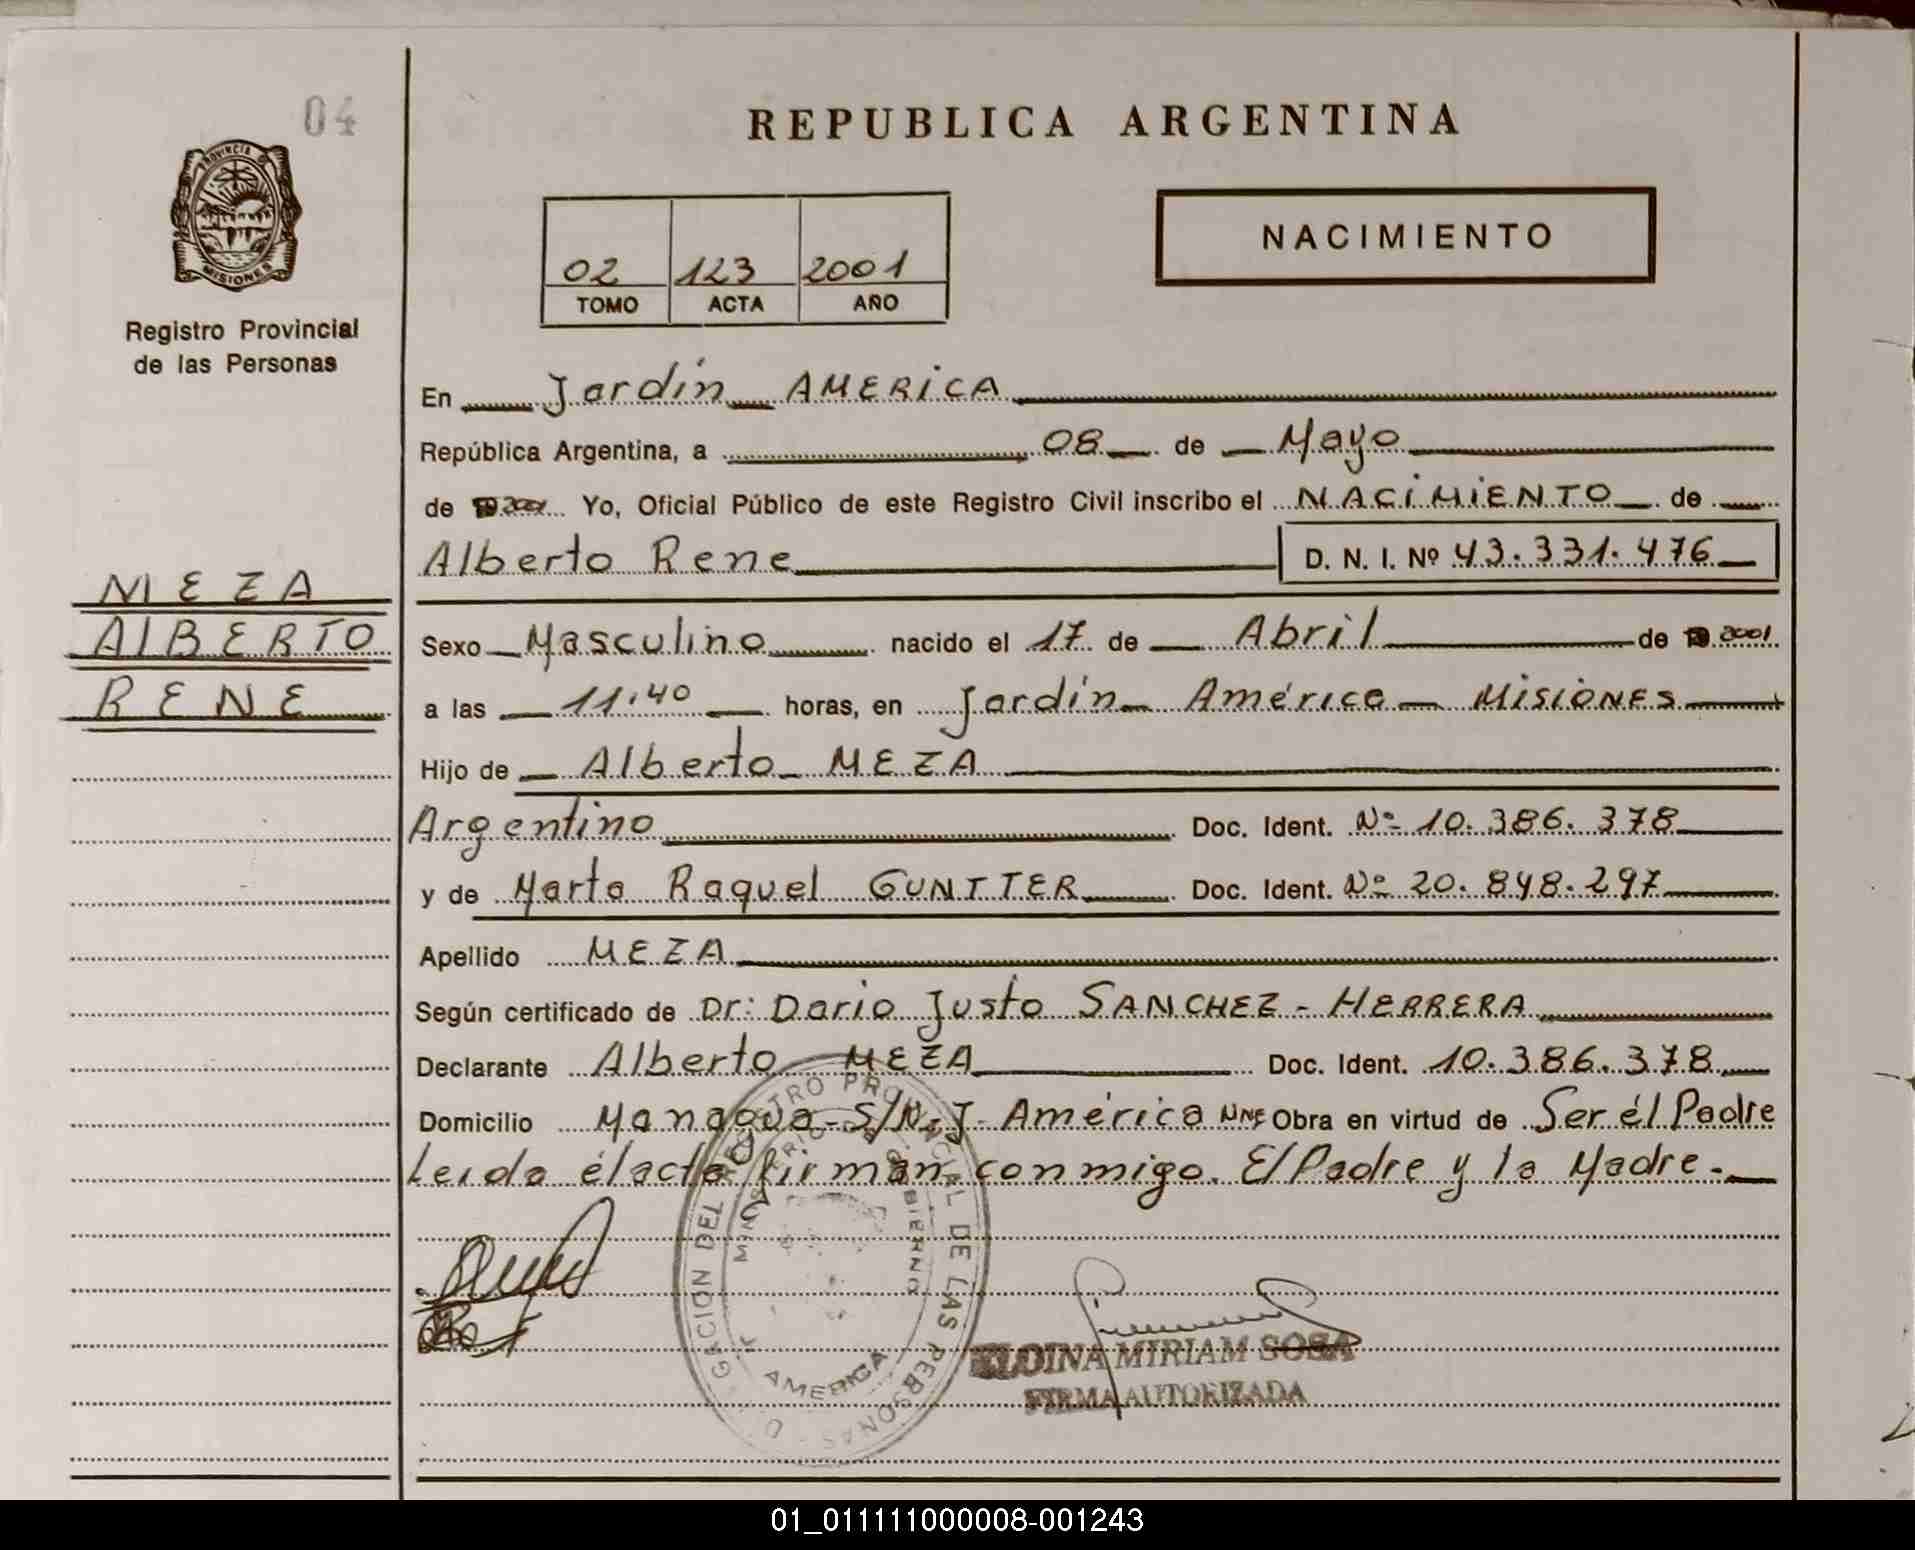 04
PROVINCIA DE
MISIONES
Registro Provincial
de las Personas
MEZA
AlBERTO
RENE
REPUBLICA ARGENTINA
02 123 2001
TOMO ACTA AÑO
NACIMIENTO
En Jardín AMERICA
República Argentina, a 08 de Mayo
de 2001 Yo, Oficial Público de este Registro Civil inscribo el NACIMIENTO de
Alberto Rene D. N. I. Nº 43.331.476
Sexo Masculino nacido el 17 de Abril de 2001
a las 11.40 horas, en Jardín América - MISIONES
Hijo de Alberto MEZA
Argentino Doc. Ident. Nº 10.386.378
y de Marta Raquel GUNTTER Doc. Ident. Nº 20.848.297
Apellido MEZA
Según certificado de Dr: Dario Justo SANCHEZ - HERRERA
Declarante Alberto MEZA Doc. Ident. 10.386.378
Domicilio Managua - S/N. J. América Mnes Obra en virtud de Ser él Padre
Leida él acta firman conmigo. El Padre y la Madre.-
DELEGACION DEL REGISTRO PROVINCIAL DE LAS PERSONAS
MINISTERIO DE GOBIERNO
AMERICA
ELOINA MIRIAM SOSA
FIRMA AUTORIZADA
01_011111000008-001243